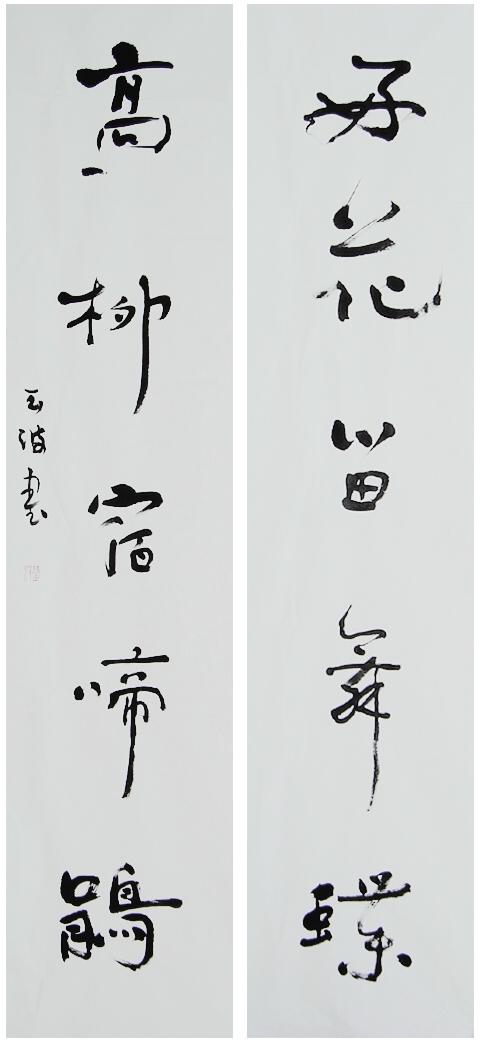 好花留舞蝶
高柳宿啼鹃
玉波书